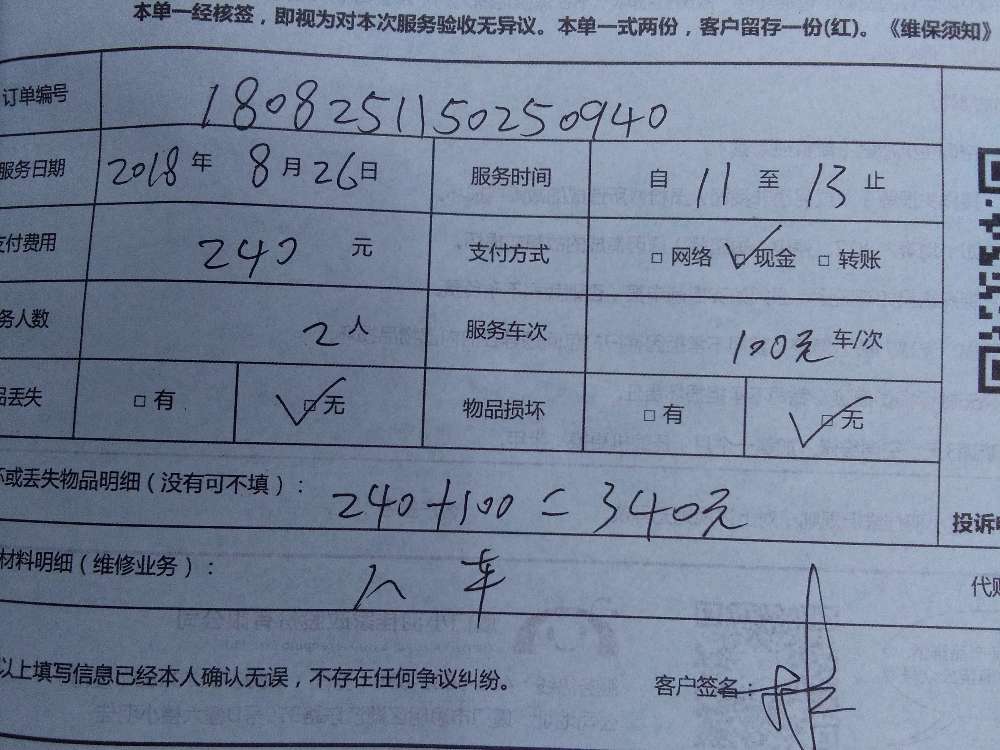 本单一经核签，即视为对本次服务验收无异议。本单一式两份，客户留存一份(红)。《维保须知》
订单编号 1808251150250940
服务日期 2018 年 8 月 26 日 服务时间 自 11 至 13 止
支付费用 240 元 支付方式 □ 网络 ☑ 现金 □ 转账
务人数 2 人 服务车次 100元 车/次
品丢失 □ 有 ☑ 无 物品损坏 □ 有 ☑ 无
坏或丢失物品明细（没有可不填）： 240+100=340元
材料明细（维修业务）： 人 车
投诉
代购
以上填写信息已经本人确认无误，不存在任何争议纠纷。 客户签名：